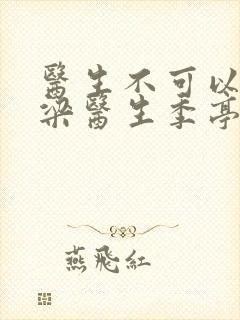 醫生不可以
梁醫生季亭
燕飛紅